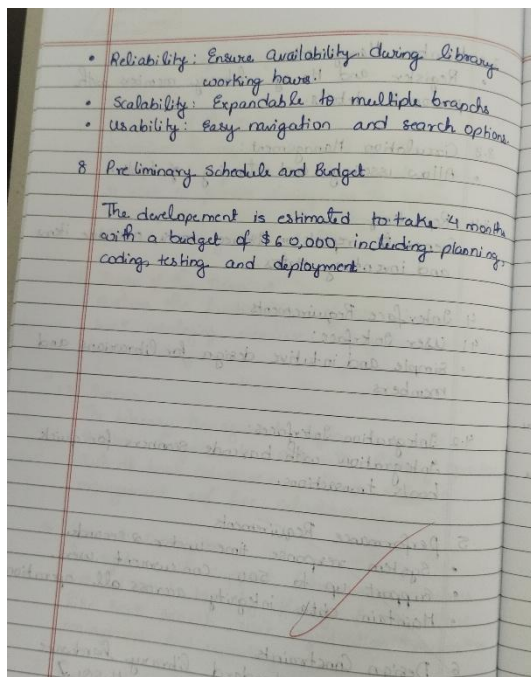 • Reliability: Ensure availability during library
working hours.
• Scalability: Expandable to multiple branchs
• Usability: Easy navigation and search options.
8 Preliminary Schedule and Budget
The developement is estimated to take 4 months
with a budget of $60,000, including: planning,
coding, testing and deployment.